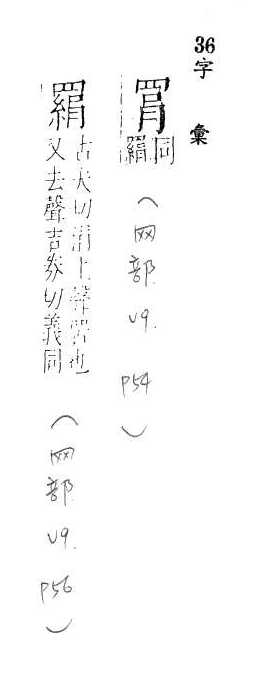 36字 彙
罥
同
羂
(网部 v9. p54)
羂
古犬切涓上聲也
又去聲吉券切義同
(网部 v9. p56)